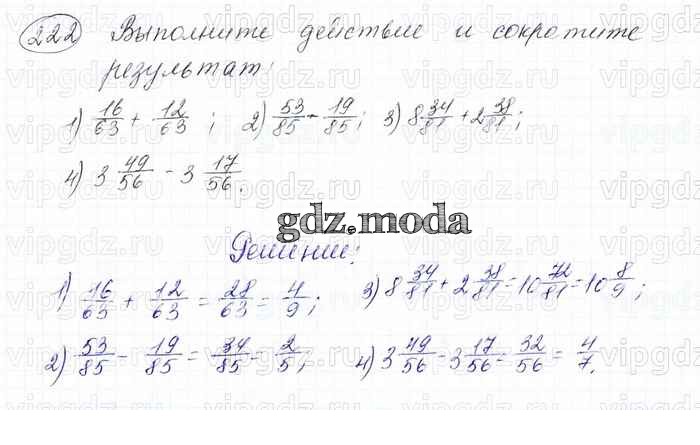 222 Выполните действие и сократите
результат:
1) 16/63 + 12/63 ; 2) 53/85 - 19/85; 3) 8 34/81 + 2 38/81;
4) 3 49/56 - 3 17/56.
gdz.moda
Решение:
1) 16/63 + 12/63 = 28/63 = 4/9; 3) 8 34/81 + 2 38/81 = 10 72/81 = 10 8/9;
2) 53/85 - 19/85 = 34/85 = 2/5; 4) 3 49/56 - 3 17/56 = 32/56 = 4/7.